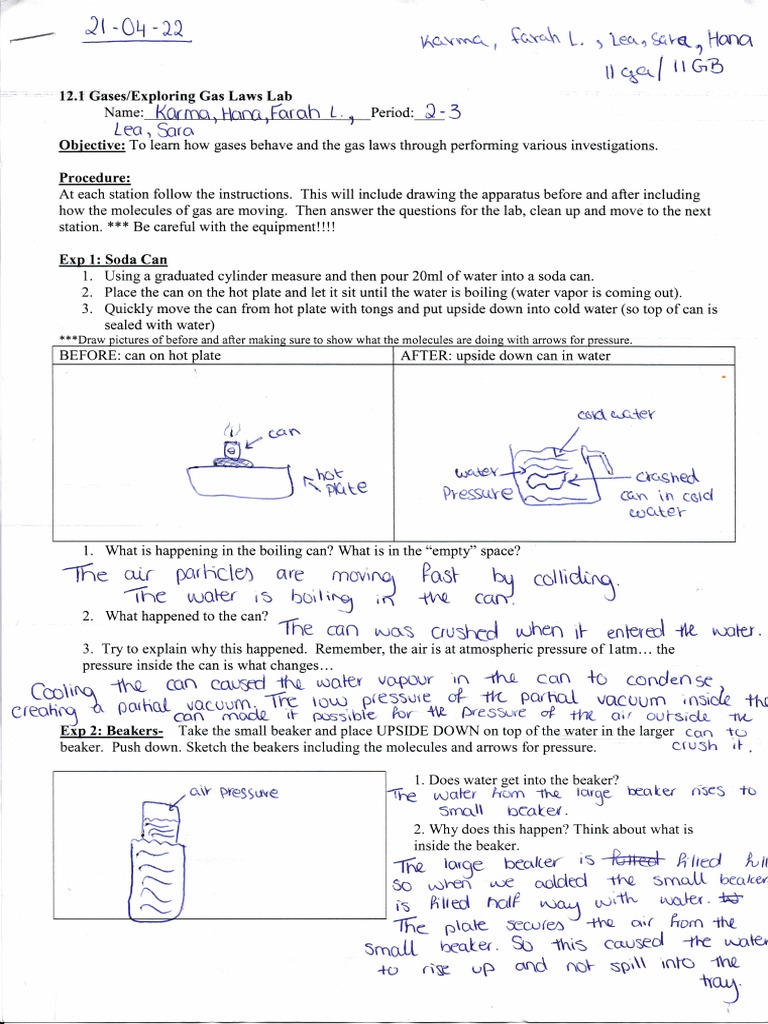 21-04-22
Karma, Farah L., Lea, Sara, Hana
11ga/ 11GB
12.1 Gases/Exploring Gas Laws Lab
Name: Karma, Hana, Farah L., Period: 2-3
Lea, Sara
Objective: To learn how gases behave and the gas laws through performing various investigations.
Procedure:
At each station follow the instructions. This will include drawing the apparatus before and after including
how the molecules of gas are moving. Then answer the questions for the lab, clean up and move to the next
station. *** Be careful with the equipment!!!!
Exp 1: Soda Can
1. Using a graduated cylinder measure and then pour 20ml of water into a soda can.
2. Place the can on the hot plate and let it sit until the water is boiling (water vapor is coming out).
3. Quickly move the can from hot plate with tongs and put upside down into cold water (so top of can is
sealed with water)
***Draw pictures of before and after making sure to show what the molecules are doing with arrows for pressure.
BEFORE: can on hot plate
can
hot
plate
AFTER: upside down can in water
cold water
water
Pressure
crashed
can in cold
water
1. What is happening in the boiling can? What is in the “empty” space?
The air particles are moving fast by colliding.
The water is boiling in the can.
2. What happened to the can?
The can was crushed when it entered the water.
3. Try to explain why this happened. Remember, the air is at atmospheric pressure of 1atm… the
pressure inside the can is what changes…
Cooling the can caused the water vapour in the can to condense,
creating a partial vacuum. The low pressure of the partial vacuum inside the
can made it possible for the pressure of the air outside the
can to
crush it.
Exp 2: Beakers- Take the small beaker and place UPSIDE DOWN on top of the water in the larger
beaker. Push down. Sketch the beakers including the molecules and arrows for pressure.
air pressure
1. Does water get into the beaker?
The water from the large beaker rises to
small beaker.
2. Why does this happen? Think about what is
inside the beaker.
The large beaker is filled full
so when we added the small beaker
is filled half way with water.
The plate secures the air from the
small beaker. So this caused the water
to rise up and not spill into the
tray.